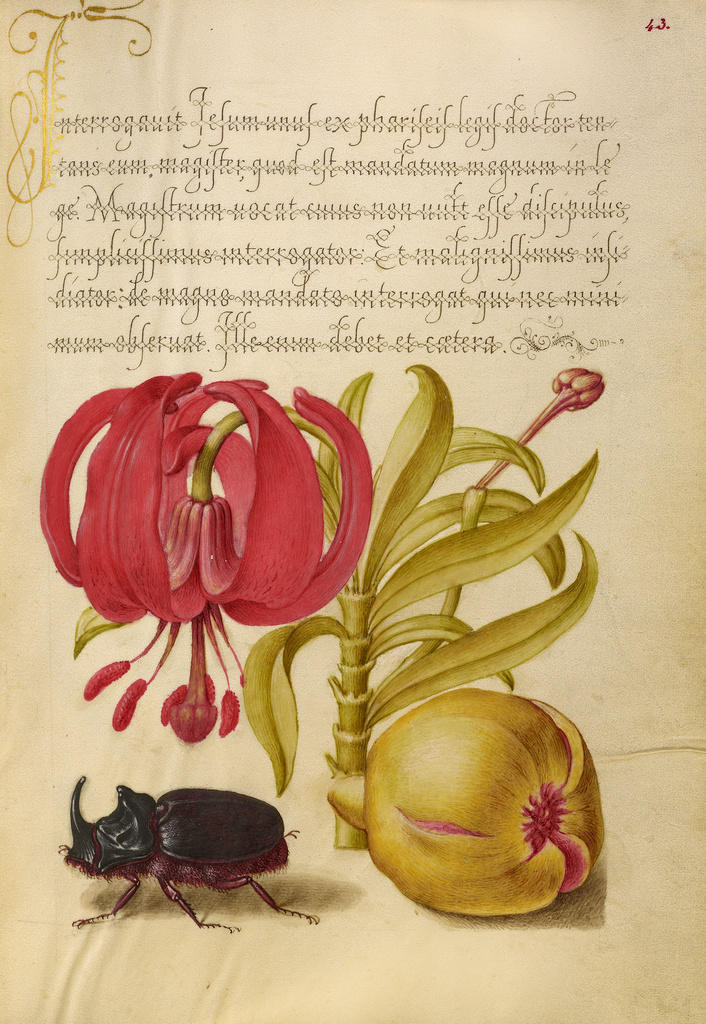 43.
Interrogavit Jesum unus ex phariseis legis doctor ten-
tans eum, magister, quod est mandatum magnum in le
ge. Magistrum vocat cuius non vult esse discipulus,
simplicissimus interrogator. Et malignissimus insi-
diator: de magno mandato interrogat qui nec mini
mum observat. Ille enim debet et cœtera.